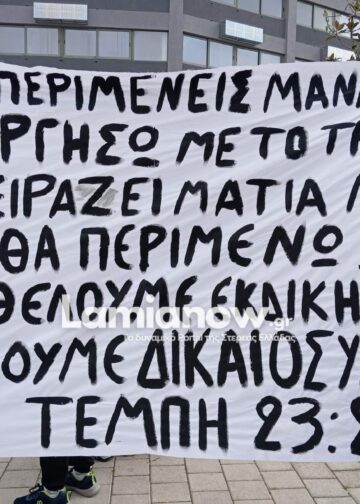 ΠΕΡΙΜΕΝΕΙΣ ΜΑΝ
ΡΓΗΣΩ ΜΕ ΤΟ ΤΡ
ΕΙΡΑΖΕΙ ΜΑΤΙΑ
ΘΑ ΠΕΡΙΜΕΝΩ
ΘΕΛΟΥΜΕ ΕΚΔΙΚΗ
ΟΥΜΕ ΔΙΚΑΙΟΣΥ
ΤΕΜΠΗ 23:
Lamianow.gr
Το δυναμικό Portal της Στερεάς Ελλάδας